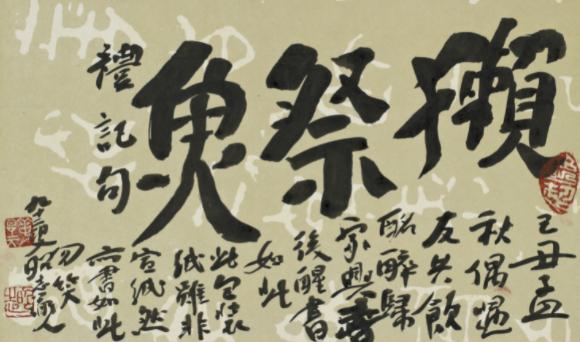 獺祭魚
禮記句
己丑孟
秋偶遇
友共飲
酩醉歸
家興
後醒書
如此
此包裝
紙雖非
宣紙然
亦書如此
勿笑